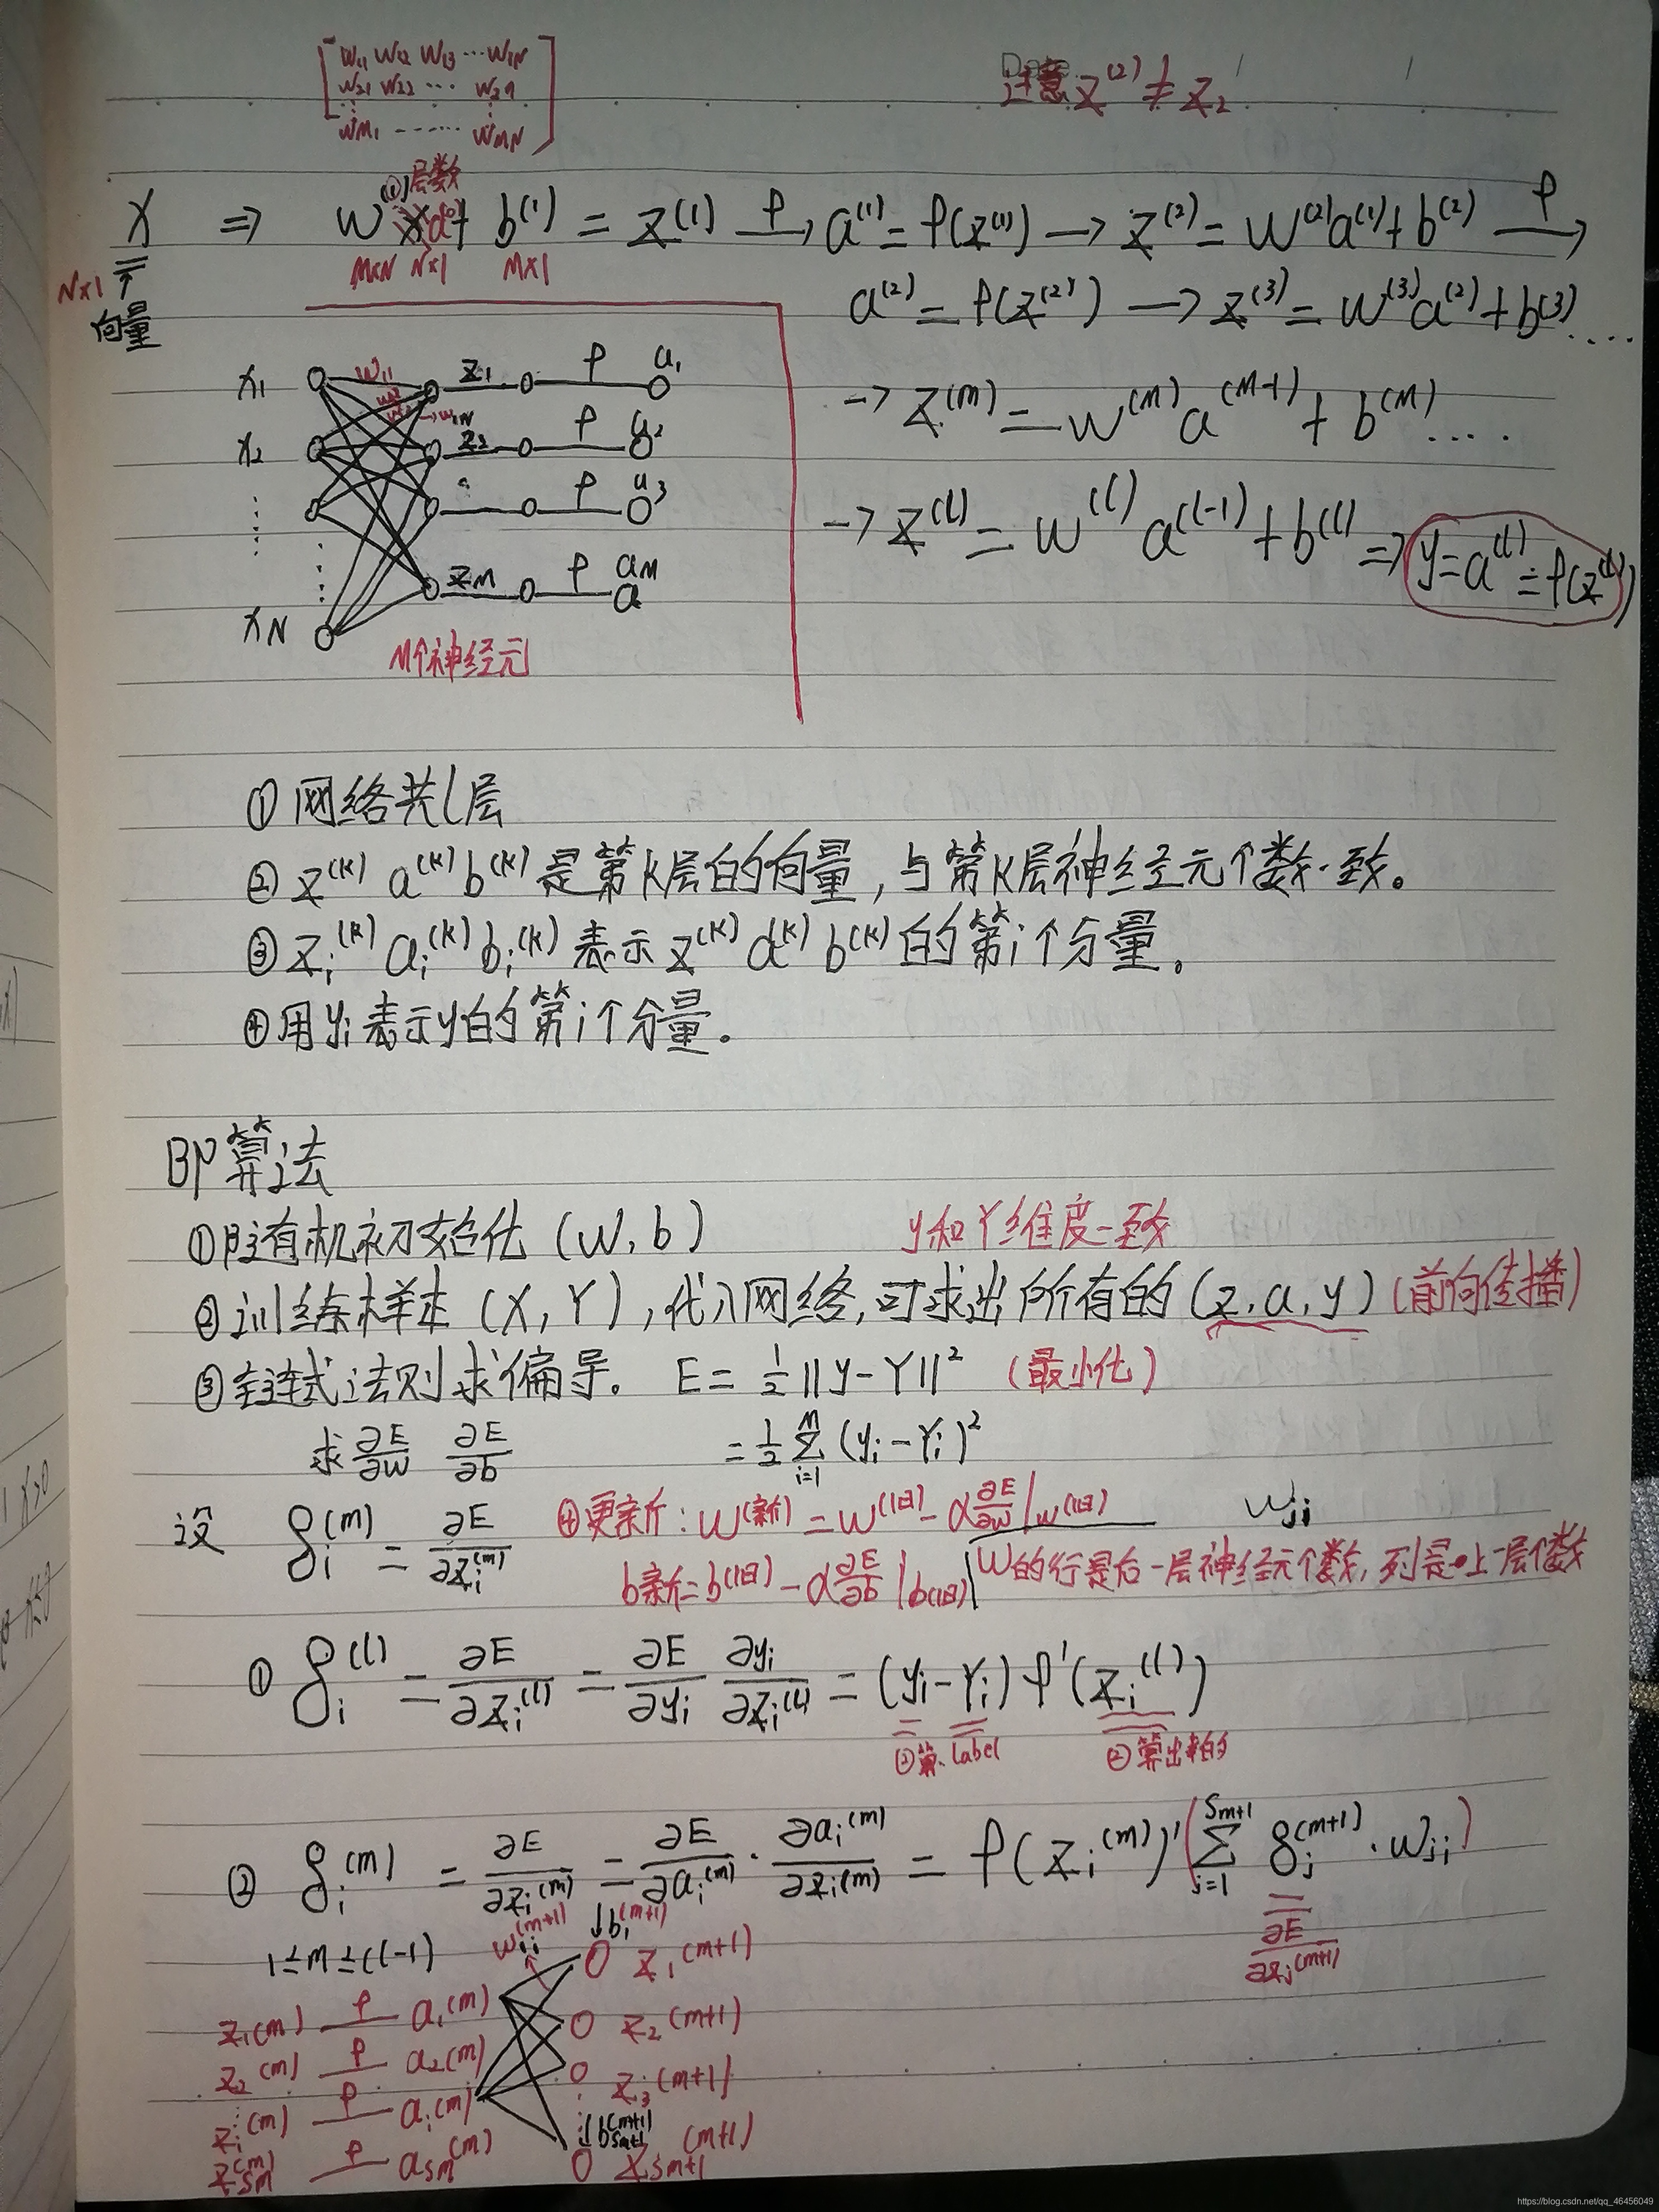 W11 W12 W13 ⋯ W1N
W21 W22 ⋯ W2n
WM1 ------ WMN
Date
注意 z⁽²⁾ ≠ z₂
(1) 层数
X ⇒ w x a⁽⁰⁾ + b⁽¹⁾ = z⁽¹⁾ —φ→ a⁽¹⁾ = φ(z⁽¹⁾) → z⁽²⁾ = w⁽²⁾a⁽¹⁾ + b⁽²⁾ —φ→
N×1 向量
M×N N×1 M×1
a⁽²⁾ = φ(z⁽²⁾) → z⁽³⁾ = w⁽³⁾a⁽²⁾ + b⁽³⁾ ....
→ z⁽ᵐ⁾ = w⁽ᵐ⁾ a⁽ᵐ⁻¹⁾ + b⁽ᵐ⁾ ....
→ z⁽ˡ⁾ = w⁽ˡ⁾ a⁽ˡ⁻¹⁾ + b⁽ˡ⁾ ⇒ y = a⁽ˡ⁾ = φ(z⁽ˡ⁾)
x1 w11 z1 φ a1
x2 z2 φ a2
φ a3
zM φ aM
xN
M个神经元
①网络共l层
②z⁽ᵏ⁾ a⁽ᵏ⁾ b⁽ᵏ⁾是第k层的向量,与第k层神经元个数一致。
③zᵢ⁽ᵏ⁾ aᵢ⁽ᵏ⁾ bᵢ⁽ᵏ⁾表示z⁽ᵏ⁾ a⁽ᵏ⁾ b⁽ᵏ⁾的第i个分量。
④用yᵢ表示y的第i个分量。
BP算法
①随机初始化(w,b)
y和Y维度一致
②训练样本(X,Y),代入网络,可求出所有的(z,a,y)(前向传播)
③链式法则求偏导。 E = ½||y-Y||² (最小化)
求 ∂E/∂w ∂E/∂b = ½ Σ_{i=1}^{M} (yᵢ-Yᵢ)²
设 δᵢ⁽ᵐ⁾ = ∂E/∂zᵢ⁽ᵐ⁾
④更新: w(新) = w(旧) - α ∂E/∂w |w(旧)
wji
b新 = b(旧) - α ∂E/∂b |b(旧)
w的行是后一层神经元个数,列是上一层个数
① δᵢ⁽ˡ⁾ = ∂E/∂zᵢ⁽ˡ⁾ = ∂E/∂yᵢ ∂yᵢ/∂zᵢ⁽ˡ⁾ = (yᵢ-Yᵢ) φ'(zᵢ⁽ˡ⁾)
label ②算出来的
② δᵢ⁽ᵐ⁾ = ∂E/∂zᵢ⁽ᵐ⁾ = ∂E/∂aᵢ⁽ᵐ⁾ · ∂aᵢ⁽ᵐ⁾/∂zᵢ⁽ᵐ⁾ = φ(zᵢ⁽ᵐ⁾)' (Σ_{j=1}^{Sm+1} δⱼ⁽ᵐ⁺¹⁾ · wji)
∂E/∂zⱼ⁽ᵐ⁺¹⁾
1≤m≤(l-1)
↓b₁⁽ᵐ⁺¹⁾
z₁⁽ᵐ⁺¹⁾
z₁⁽ᵐ⁾ φ a₁⁽ᵐ⁾
z₂⁽ᵐ⁺¹⁾
z₂⁽ᵐ⁾ φ a₂⁽ᵐ⁾
z₃⁽ᵐ⁺¹⁾
zᵢ⁽ᵐ⁾ φ aᵢ⁽ᵐ⁾
↓b_{Sm+1}⁽ᵐ⁺¹⁾
z_{Sm}⁽ᵐ⁾ φ a_{Sm}⁽ᵐ⁾
z_{Sm+1}⁽ᵐ⁺¹⁾
https://blog.csdn.net/qq_46456049